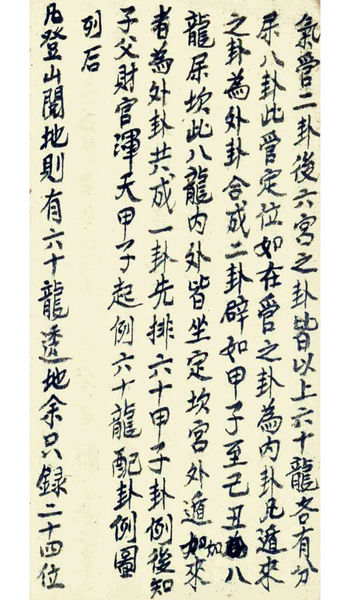 氣管二卦後六宮之卦皆以上六十龍各有分
尿八卦此管定位如在管之卦為内卦凡遁來
之卦為外卦合成二卦辟如甲子至己丑八
龍屎坎此八龍内外皆坐定坎宮外遁如來
者為外卦共成一卦先排六十甲子卦例後知
子父財官渾天甲子起例六十龍配卦例圖
列后
凡登山開地則有六十龍透地余只錄二十四位